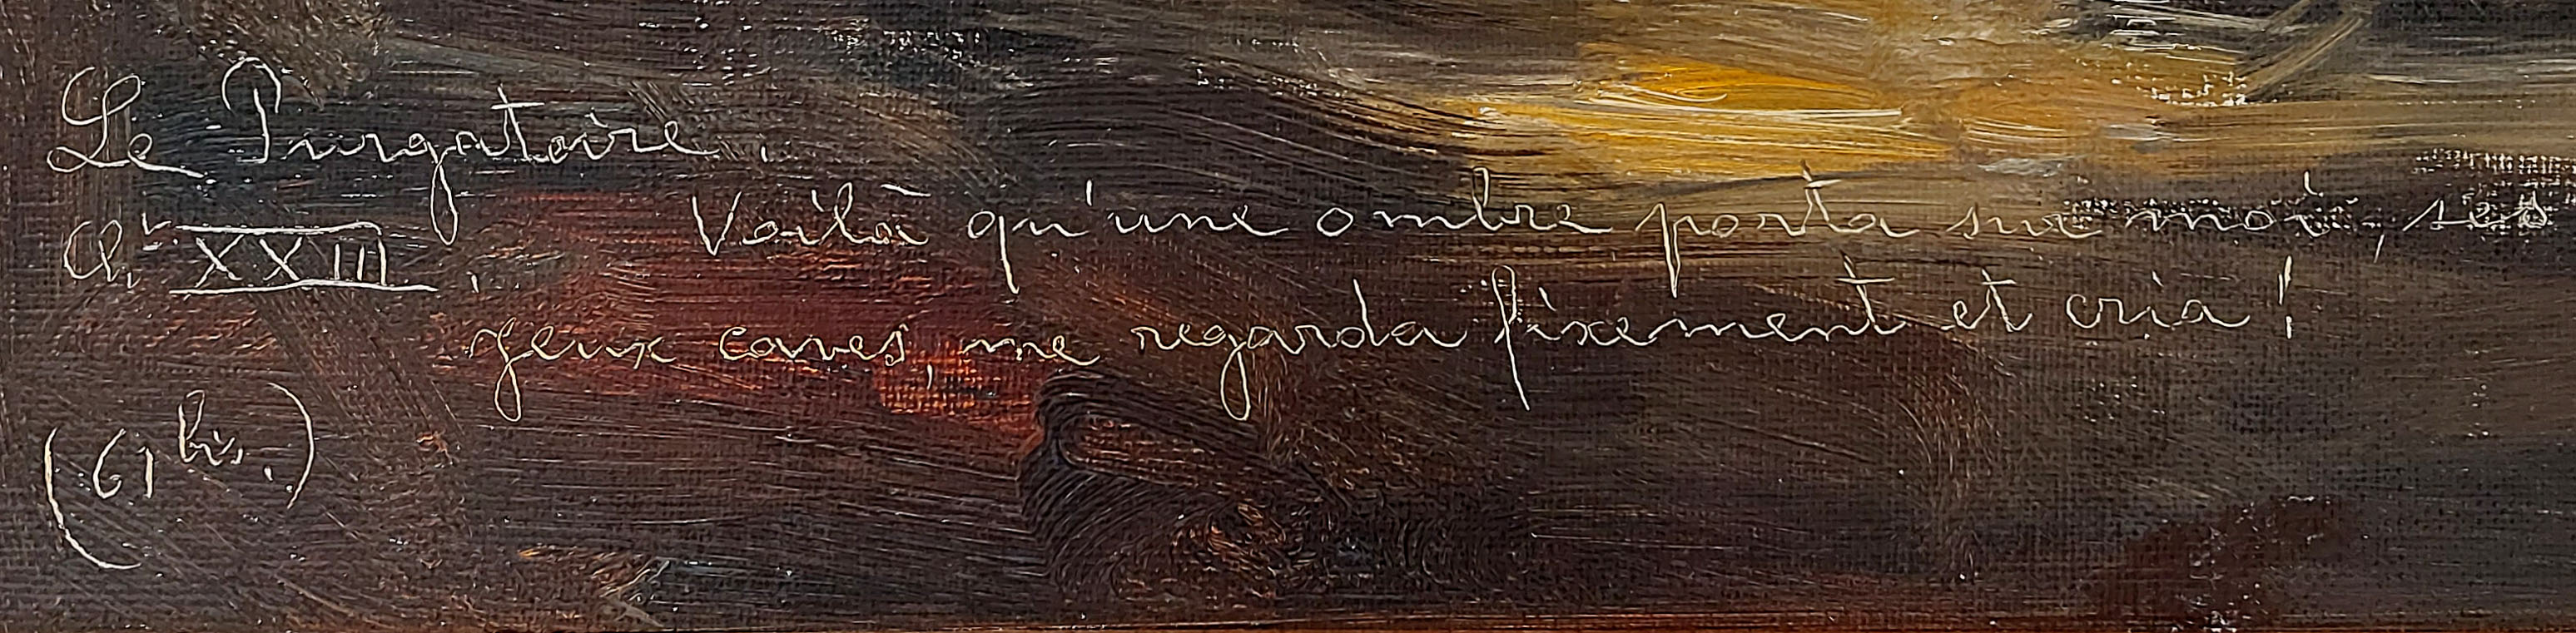 Le Purgatoire.
Ch. XXIII. Voilà qu'une ombre porta sur moi, ses
yeux caves, me regarda fixement et cria!
(61 bis.)